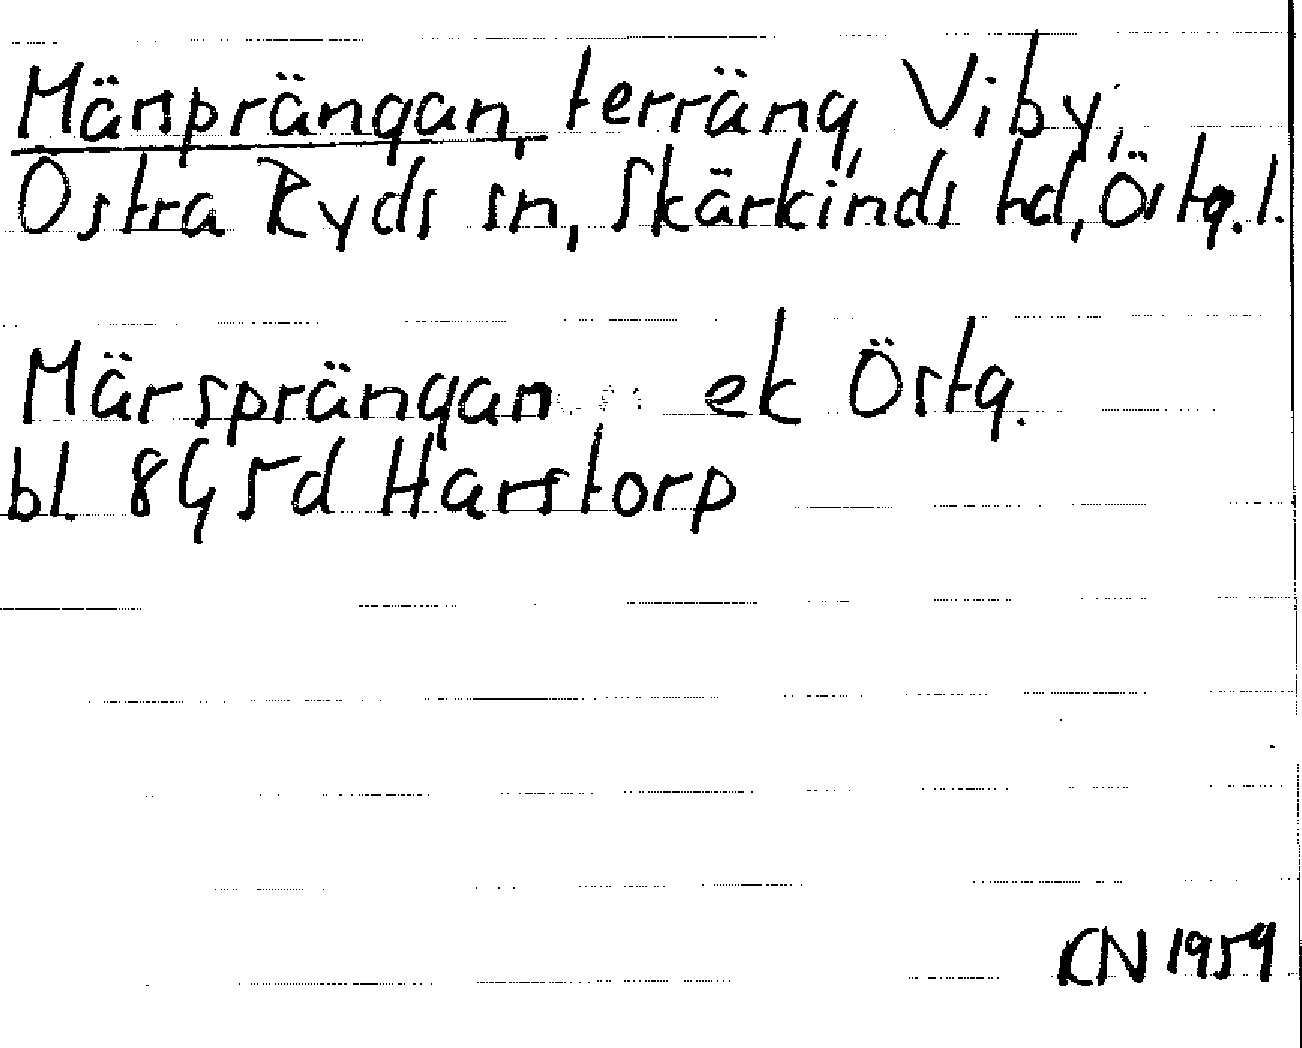 Märsprängan, terräng Viby,
Östra Ryds sn, Skärkinds hd, Östg. l.
Märsprängan ek Östg.
bl. 8G 5d Harstorp
KN 1959